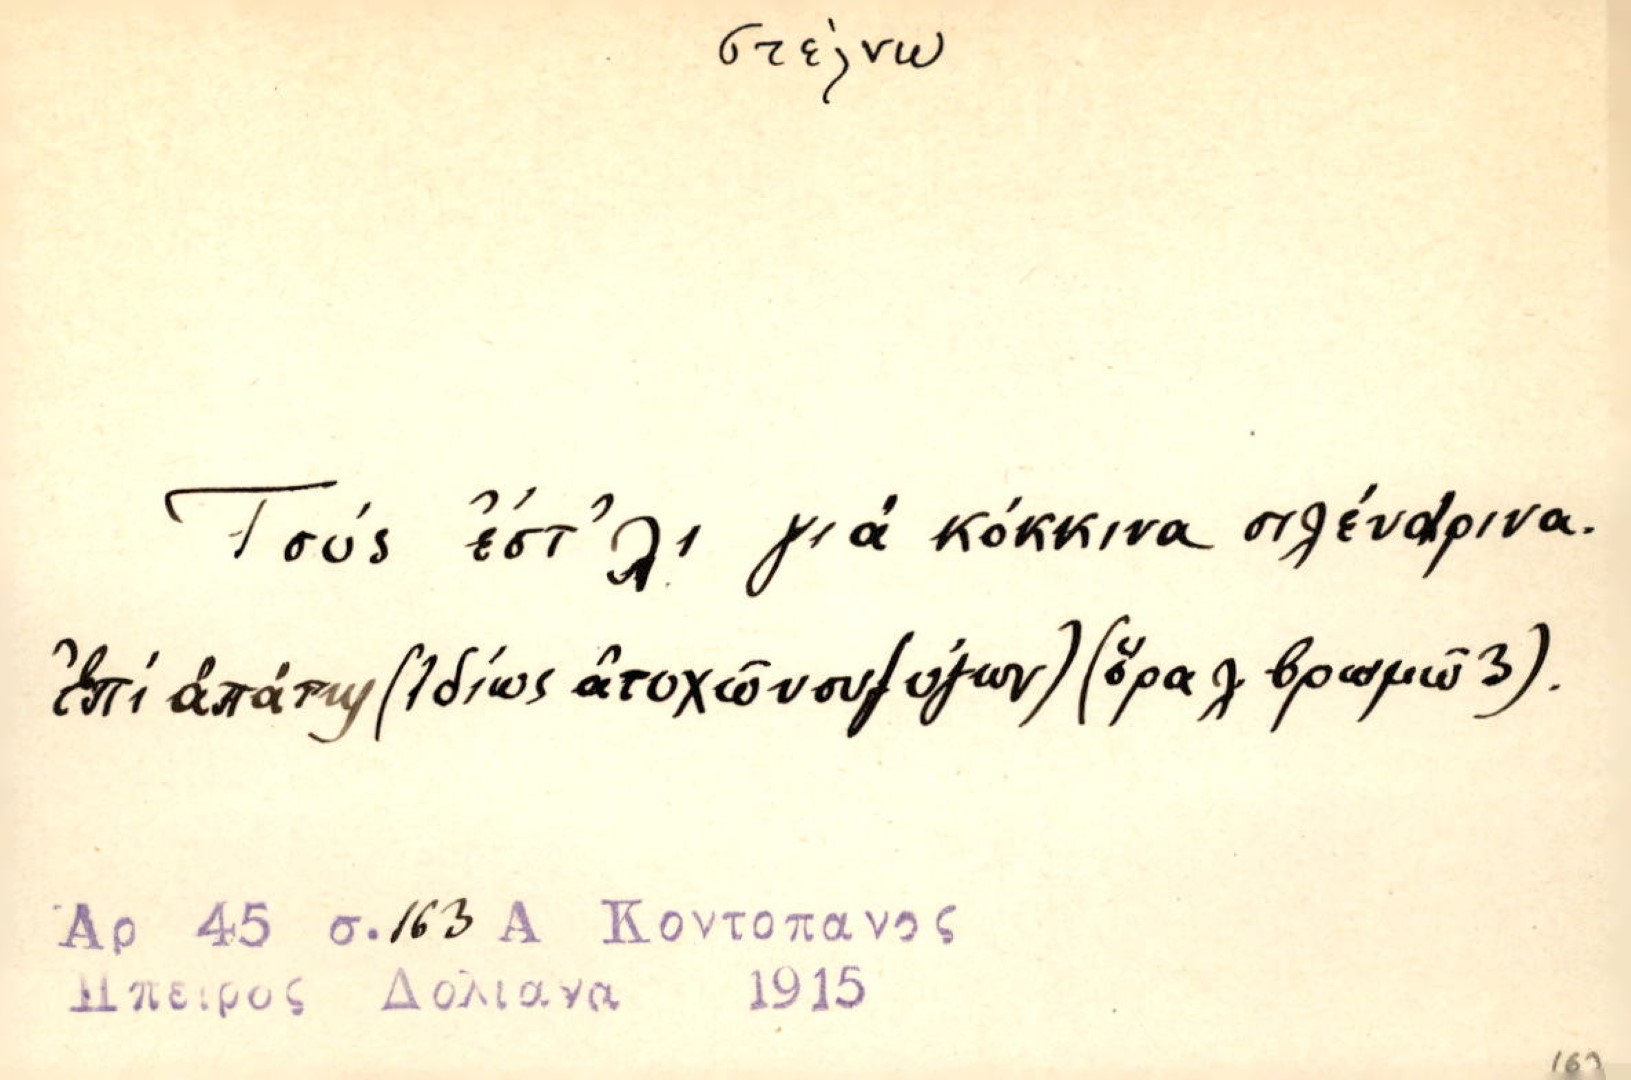 στέλνω
Τσούς ἔστ'λι γιά κόκκινα σιλένdρινα.
Ἐπί ἀπάτης (Ἰδίως ἀτυχῶν συζύγων) (ὅρα λ βρωμῶ 3).
Αρ 45 σ. 163 Α Κοντοπανος
Ηπειρος Δολιανα 1915